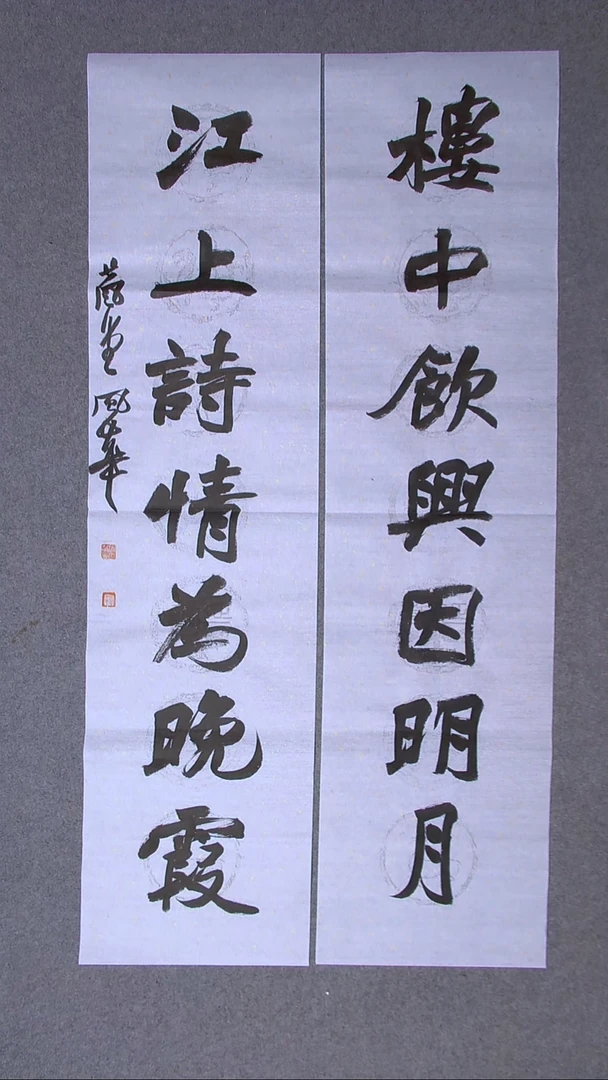 樓中飲興因明月
江上詩情為晚霞